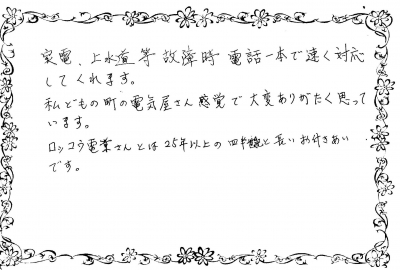 家電、上水道等故障時電話一本で速く対応
してくれます。
私どもの町の電気屋さん感覚で大変ありがたく思って
います。
ロッコウ電業さんとは25年以上の四半世紀と長いお付きあい
です。